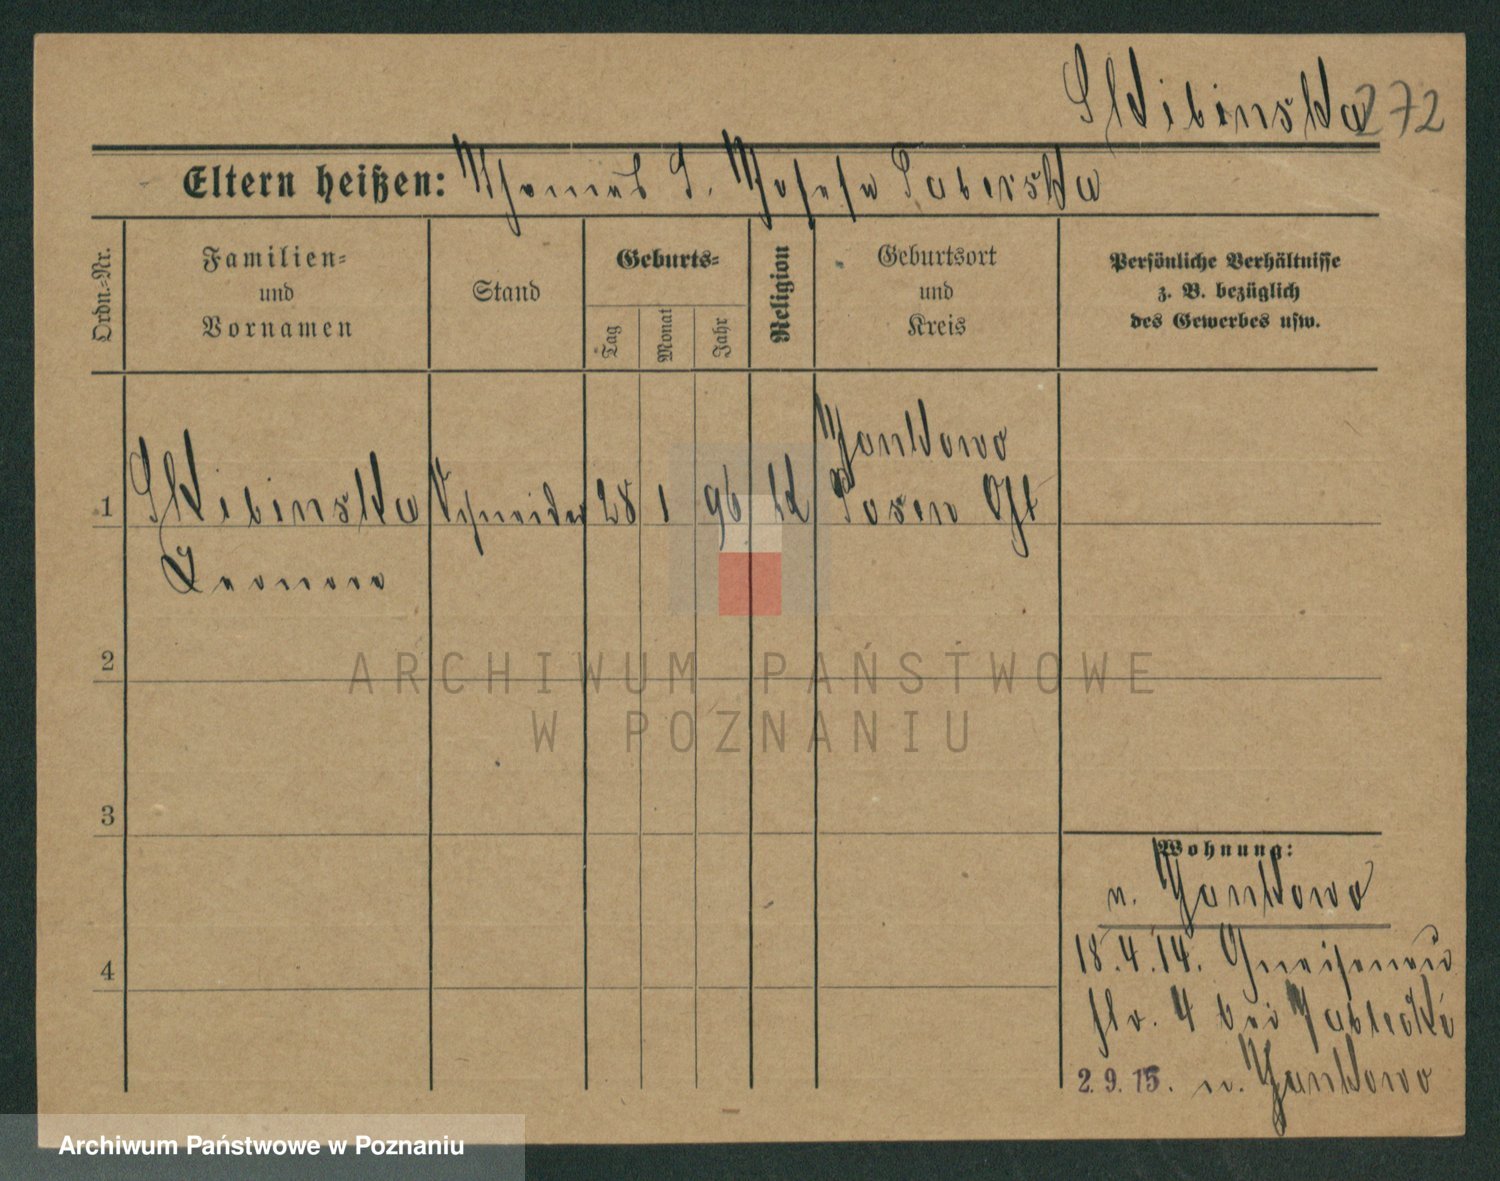 Skibinska 272
Eltern heißen: Thomas S. Josefa Taberska
Ordn.-Nr.
Familien-
und
Vornamen
Stand
Geburts-
Tag
Monat
Jahr
Religion
Geburtsort
und
Kreis
Persönliche Verhältnisse
z. B. bezüglich
des Gewerbes usw.
Jankowo
1 Skibinska Schneider 28 1 96 k Posen Ost
Leonore
2
ARCHIWUM PAŃSTWOWE
W POZNANIU
3
Wohnung:
n. Jankowo
4
18.4.14. Gneisenau
str. 4 bei
2.9.15. n. Jankowo
Archiwum Państwowe w Poznaniu